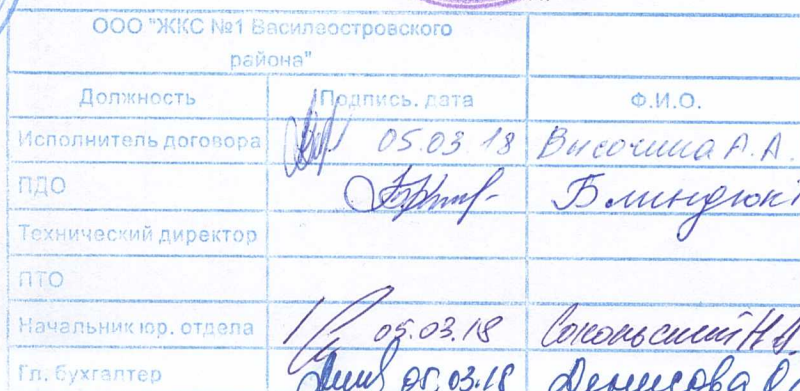 ООО "ЖКС №1 Василеостровского
района"
Должность Подпись. дата Ф.И.О.
Исполнитель договора 05.03.18 Высочина А.А.
ПДО Блиндюк
Технический директор
ПТО
Начальник юр. отдела 05.03.18
Гл. бухгалтер 05.03.18 Денисова О.